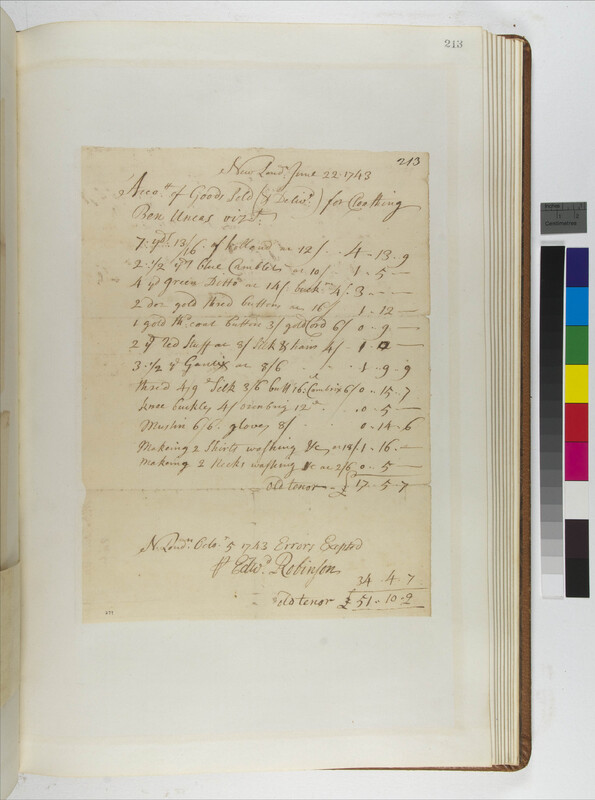 213
213
New Lond.n June 22 1743
Acco.tt of Goods Sold (& Deliv.d) for Cloathing
Ben Uncas vizt.
7: yd.s 13/16 of holland at 12/ 4 - 13 - 9
2 - 1/2 yd blue Camblet at 10/ 1 - 5 -
4 yd green Ditto at 14/ buck.m 4/ 3 - - -
2 doz gold thred buttons at 16/ 1 - 12 -
1 gold th.d coat button 3/ gold Cord 6/ 0 - 9 -
2 yd red Stuff at 8/ Silk & hair 4/ 1 0 -
3 - 1/2 yd Garlix at 8/6 1 - 9 - 9
thre'd 4/9d Silk 3/6 butt 16:d Cambrix 6/ 0 - 15 - 7
knee buckles 4/ ozenbrig 12d 0 - 5 -
Muslin 6/6 gloves 8/ 0 - 14 - 6
Makeing 2 Shirts washing &c at 18/ 1 - 16 -
making 2 Necks washing &c at 2/6 0 - 5 -
old tenor £ 17 - 5 - 7
N. Lond.n Octo.r 5 1743 Errors Excepted
P Edw.d Robinson
34 - 4 - 7
old tenor £ 51 - 10 - 2